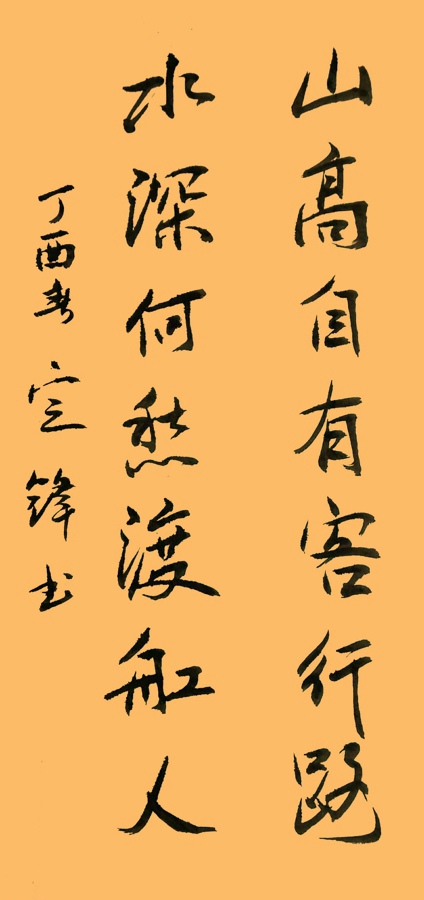 山高自有客行路
水深何愁渡舡人
丁酉春 定鋒书